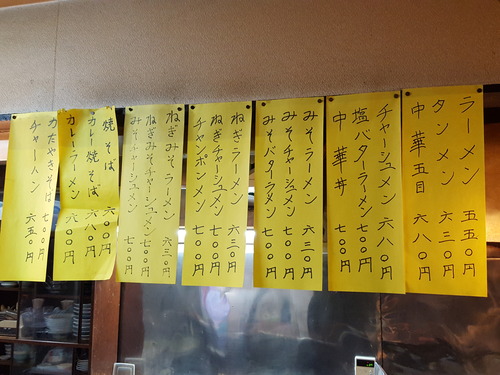 ラーメン 五五〇円
タンメン 六三〇円
中華五目 六八〇円
チャーシュメン 六八〇円
塩バタラーメン 七〇〇円
中華丼 七〇〇円
みそラーメン 六三〇円
みそチャーシュメン 七〇〇円
みそバタラーメン 七〇〇円
ねぎラーメン 六三〇円
ねぎチャーシュメン 七〇〇円
チャンポンメン 七〇〇円
ねぎみそラーメン 六三〇円
ねぎみそチャーシュメン 七〇〇円
みそチャーシュメン 七〇〇円
焼そば 六〇〇円
カレー焼そば 六八〇円
カレーラーメン 六八〇円
カたやきそば 七〇〇円
チャーハン 六五〇円